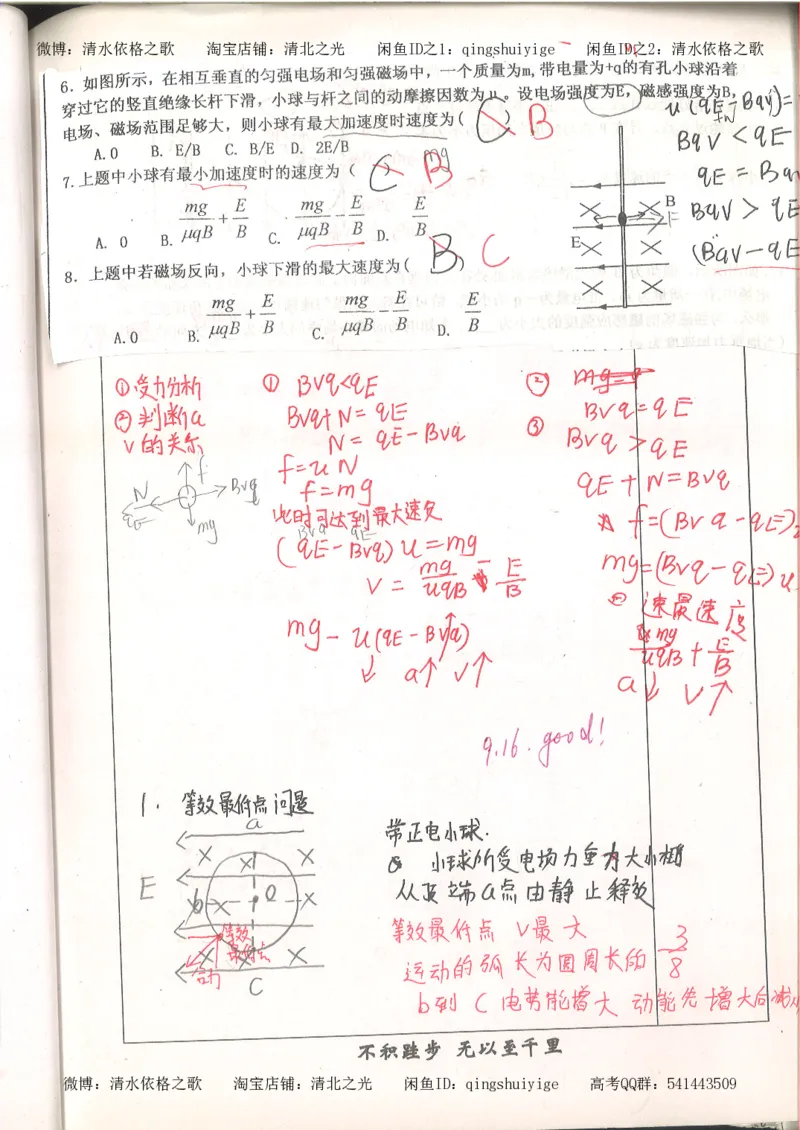 微博：清水依格之歌 淘宝店铺：清北之光 闲鱼ID之1：qingshuiyige 闲鱼ID之2：清水依格之歌
6. 如图所示，在相互垂直的匀强电场和匀强磁场中，一个质量为m,带电量为+q的有孔小球沿着
穿过它的竖直绝缘长杆下滑，小球与杆之间的动摩擦因数为μ。设电场强度为E，磁感强度为B，
电场、磁场范围足够大，则小球有最大加速度时速度为( C ) B
A.0 B. E/B C. B/E D. 2E/B
7.上题中小球有最小加速度时的速度为 ( C ) B
A. 0 B. mg/μqB + E/B C. mg/μqB − E/B D. E/B
8. 上题中若磁场反向，小球下滑的最大速度为( B ) C
A.0 B. mg/μqB + E/B C. mg/μqB − E/B D. E/B
u(qE-Bqv)=
+N
BqV < qE
qE = Bqv
BqV > qE
(Bqv-qE
mg
B
E
E
①受力分析
②判断a
v的关系
f
N
Bvq
qE
mg
① Bvq<qE
Bvq+N = qE
N = qE-Bvq
f=uN
f=mg
此时可达到最大速度
Bvq qE
(qE-Bvq)u=mg
v = mg/uqB - E/B
mg - u(qE-Bvq)
↓ a↑ v↑
② mg=q
Bvq=qE
③ Bvq>qE
qE+N=Bvq
f=(Bvq-qE)
mg=(Bvq-qE)u
速最速度
umg/uqB + E/B
a↓ v↑
9.16. good!
1. 等效最低点问题
a
E
b
O
c
等效
最低点
合力
带正电小球.
小球所受电场力重力大小相
从顶端a点由静止释放
等效最低点 v最大
运动的弧长为圆周长的 3/8
b到c电势能增大 动能先增大后减小
不积跬步 无以至千里
微博：清水依格之歌 淘宝店铺：清北之光 闲鱼ID：qingshuiyige 高考QQ群：541443509